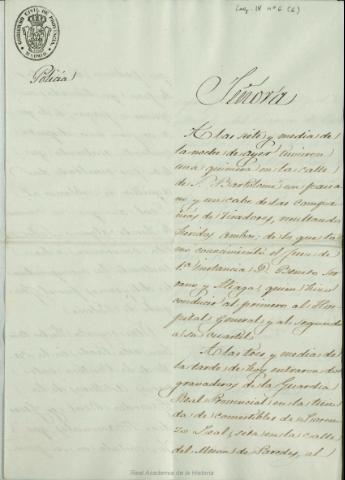 Leg. IX nº 6 (6)
GOBIERNO CIVIL DE PROVINCIA
MADRID
Policía
Señora
A las siete y media de
la noche de ayer tuvieron
una quimera en la calle
de S. Bartolomé un paisa
no y un cabo de las compa
ñias de Tiradores, resultando
heridos ambos; de lo que to
mó conocimiento el Juez de
1ª instancia D. Benito Ser
rano y Aliaga, quien hizo
conducir al primero al Hos
pital General, y al segundo
a su cuartel.
A las tres y media de
la tarde de hoy entraron dos
granaderos de la Guardia
Real Provincial en la tien
da de comestibles de Loren
zo Leal, sita en la calle
del Meson de Paredes, al
Real Academia de la Historia